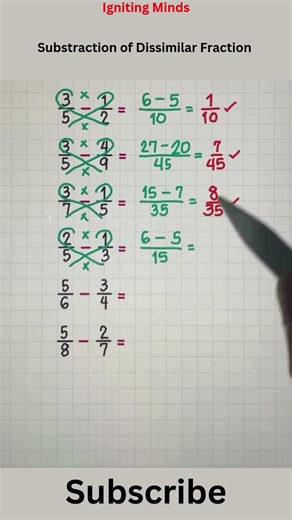 Igniting Minds
Substraction of Dissimilar Fraction
3/5 × - 1/2 × = 6-5/10 = 1/10 ✓
3/5 × - 4/9 × = 27-20/45 = 7/45 ✓
3/7 × - 1/5 × = 15-7/35 = 8/35 ✓
2/5 × - 1/3 × = 6-5/15 =
5/6 - 3/4 =
5/8 - 2/7 =
Subscribe